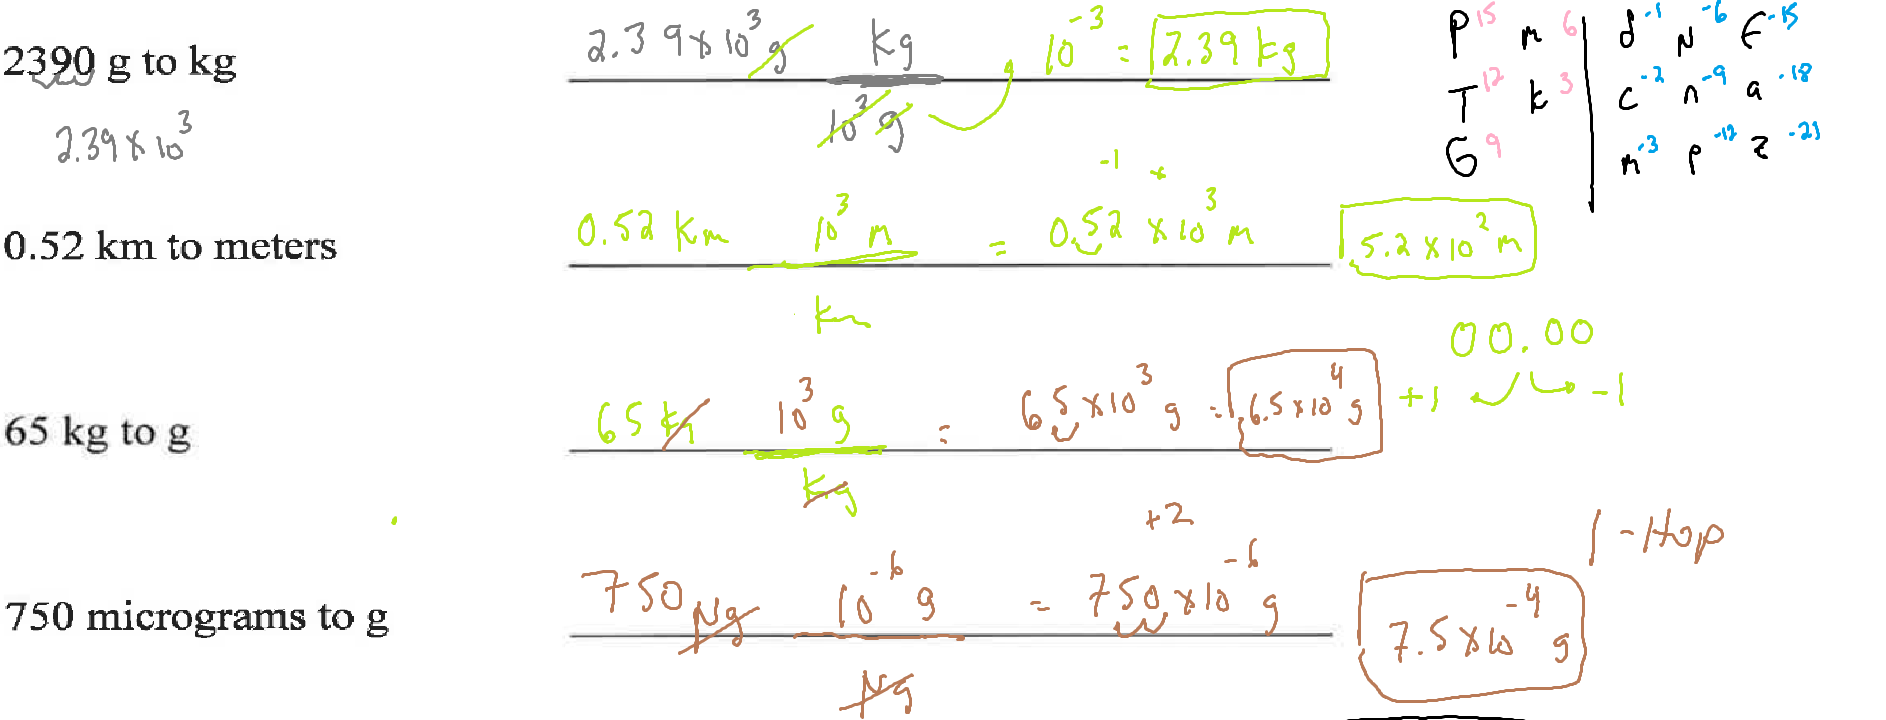 2390 g to kg
2.39 x 10³
2.39 x 10³ g kg 10⁻³ = 2.39 kg
10³ g
P 15 m 6 d -1 N -6 F -15
T 12 k 3 c -2 n -9 a -18
G 9 m -3 p -12 z -21
-1 +
0.52 km to meters 0.52 Km 10³ m = 0.52 x 10³ m 5.2 x 10² m
km
00.00
+1 -1
65 kg to g 65 kg 10³ g = 65 x 10³ g = 6.5 x 10⁴ g
kg
+2
1-Hop
750 micrograms to g 750 Ng 10⁻⁶ g = 750. x 10⁻⁶ g 7.5 x 10⁻⁴ g
Ng